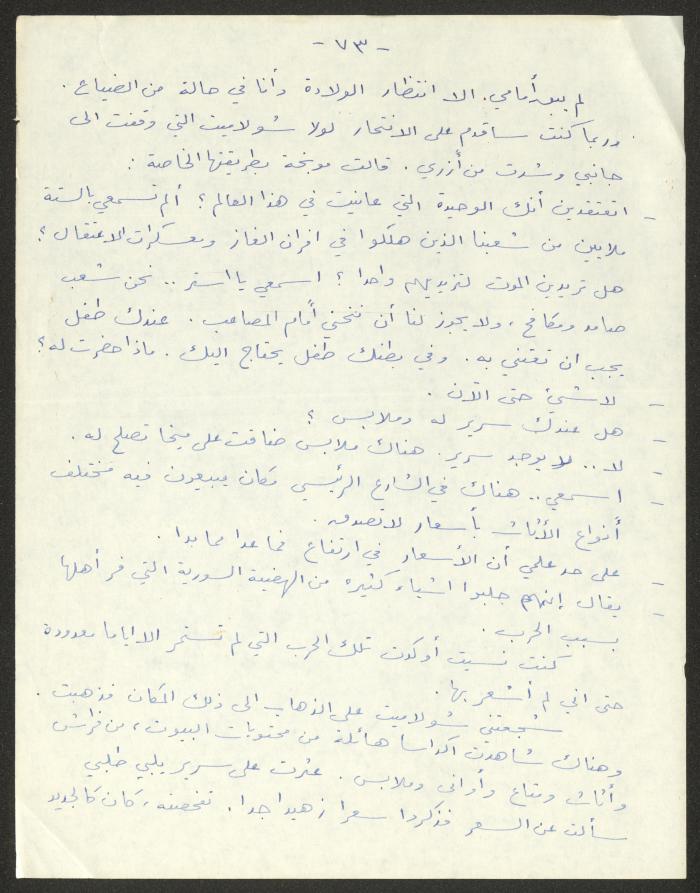 - ٧٣ -
لم يبق أمامي. الا انتظار الولادة وأنا في حالة من الضياع .
وربما كنت سأقدم على الانتحار لولا شولاميت التي وقفت الى
جانبي وشدت من أزري . قالت موبخة بطريقتها الخاصة :
- اتعتقدين أنك الوحيدة التي عانيت في هذا العالم ؟ ألم تسمعي بالستة
ملايين من شعبنا الذين هلكوا في افران الغاز ومعسكرات الاعتقال ؟
هل تريدين الموت لتزيديهم واحدا ؟ اسمعي يا استر .. نحن شعب
صامد ومكافح ، ولا يجوز لنا أن ننحني أمام المصاعب . عندك طفل
يجب ان تعتني به . وفي بطنك طفل يحتاج اليك . ماذا حضرت له ؟
- لا شيء حتى الآن .
- هل عندك سرير له وملابس ؟
- لا .. لا يوجد سرير . هناك ملابس ضاقت على ميخا تصلح له .
- اسمعي .. هناك في الشارع الرئيسي مكان يبيعون فيه مختلف
أنواع الأثاث بأسعار لا تصدق .
- على حد علمي أن الأسعار في ارتفاع فما عدا مما بدا .
- يقال إنهم جلبوا اشياء كثيرة من الهضبة السورية التي فر أهلها
بسبب الحرب .
كنت نسيت أو كدت تلك الحرب التي لم تستمر الا اياما معدودة
حتى اني لم أشعر بها .
شجعتني شولاميت على الذهاب الى ذلك المكان فذهبت .
وهناك شاهدت اكداسا هائلة من محتويات البيوت ، من فراش
وأثاث ومتاع وأواني وملابس . عثرت على سرير يلبي طلبي
سألت عن السعر فذكروا سعرا زهيدا جدا . تفحصته ، كان كالجديد